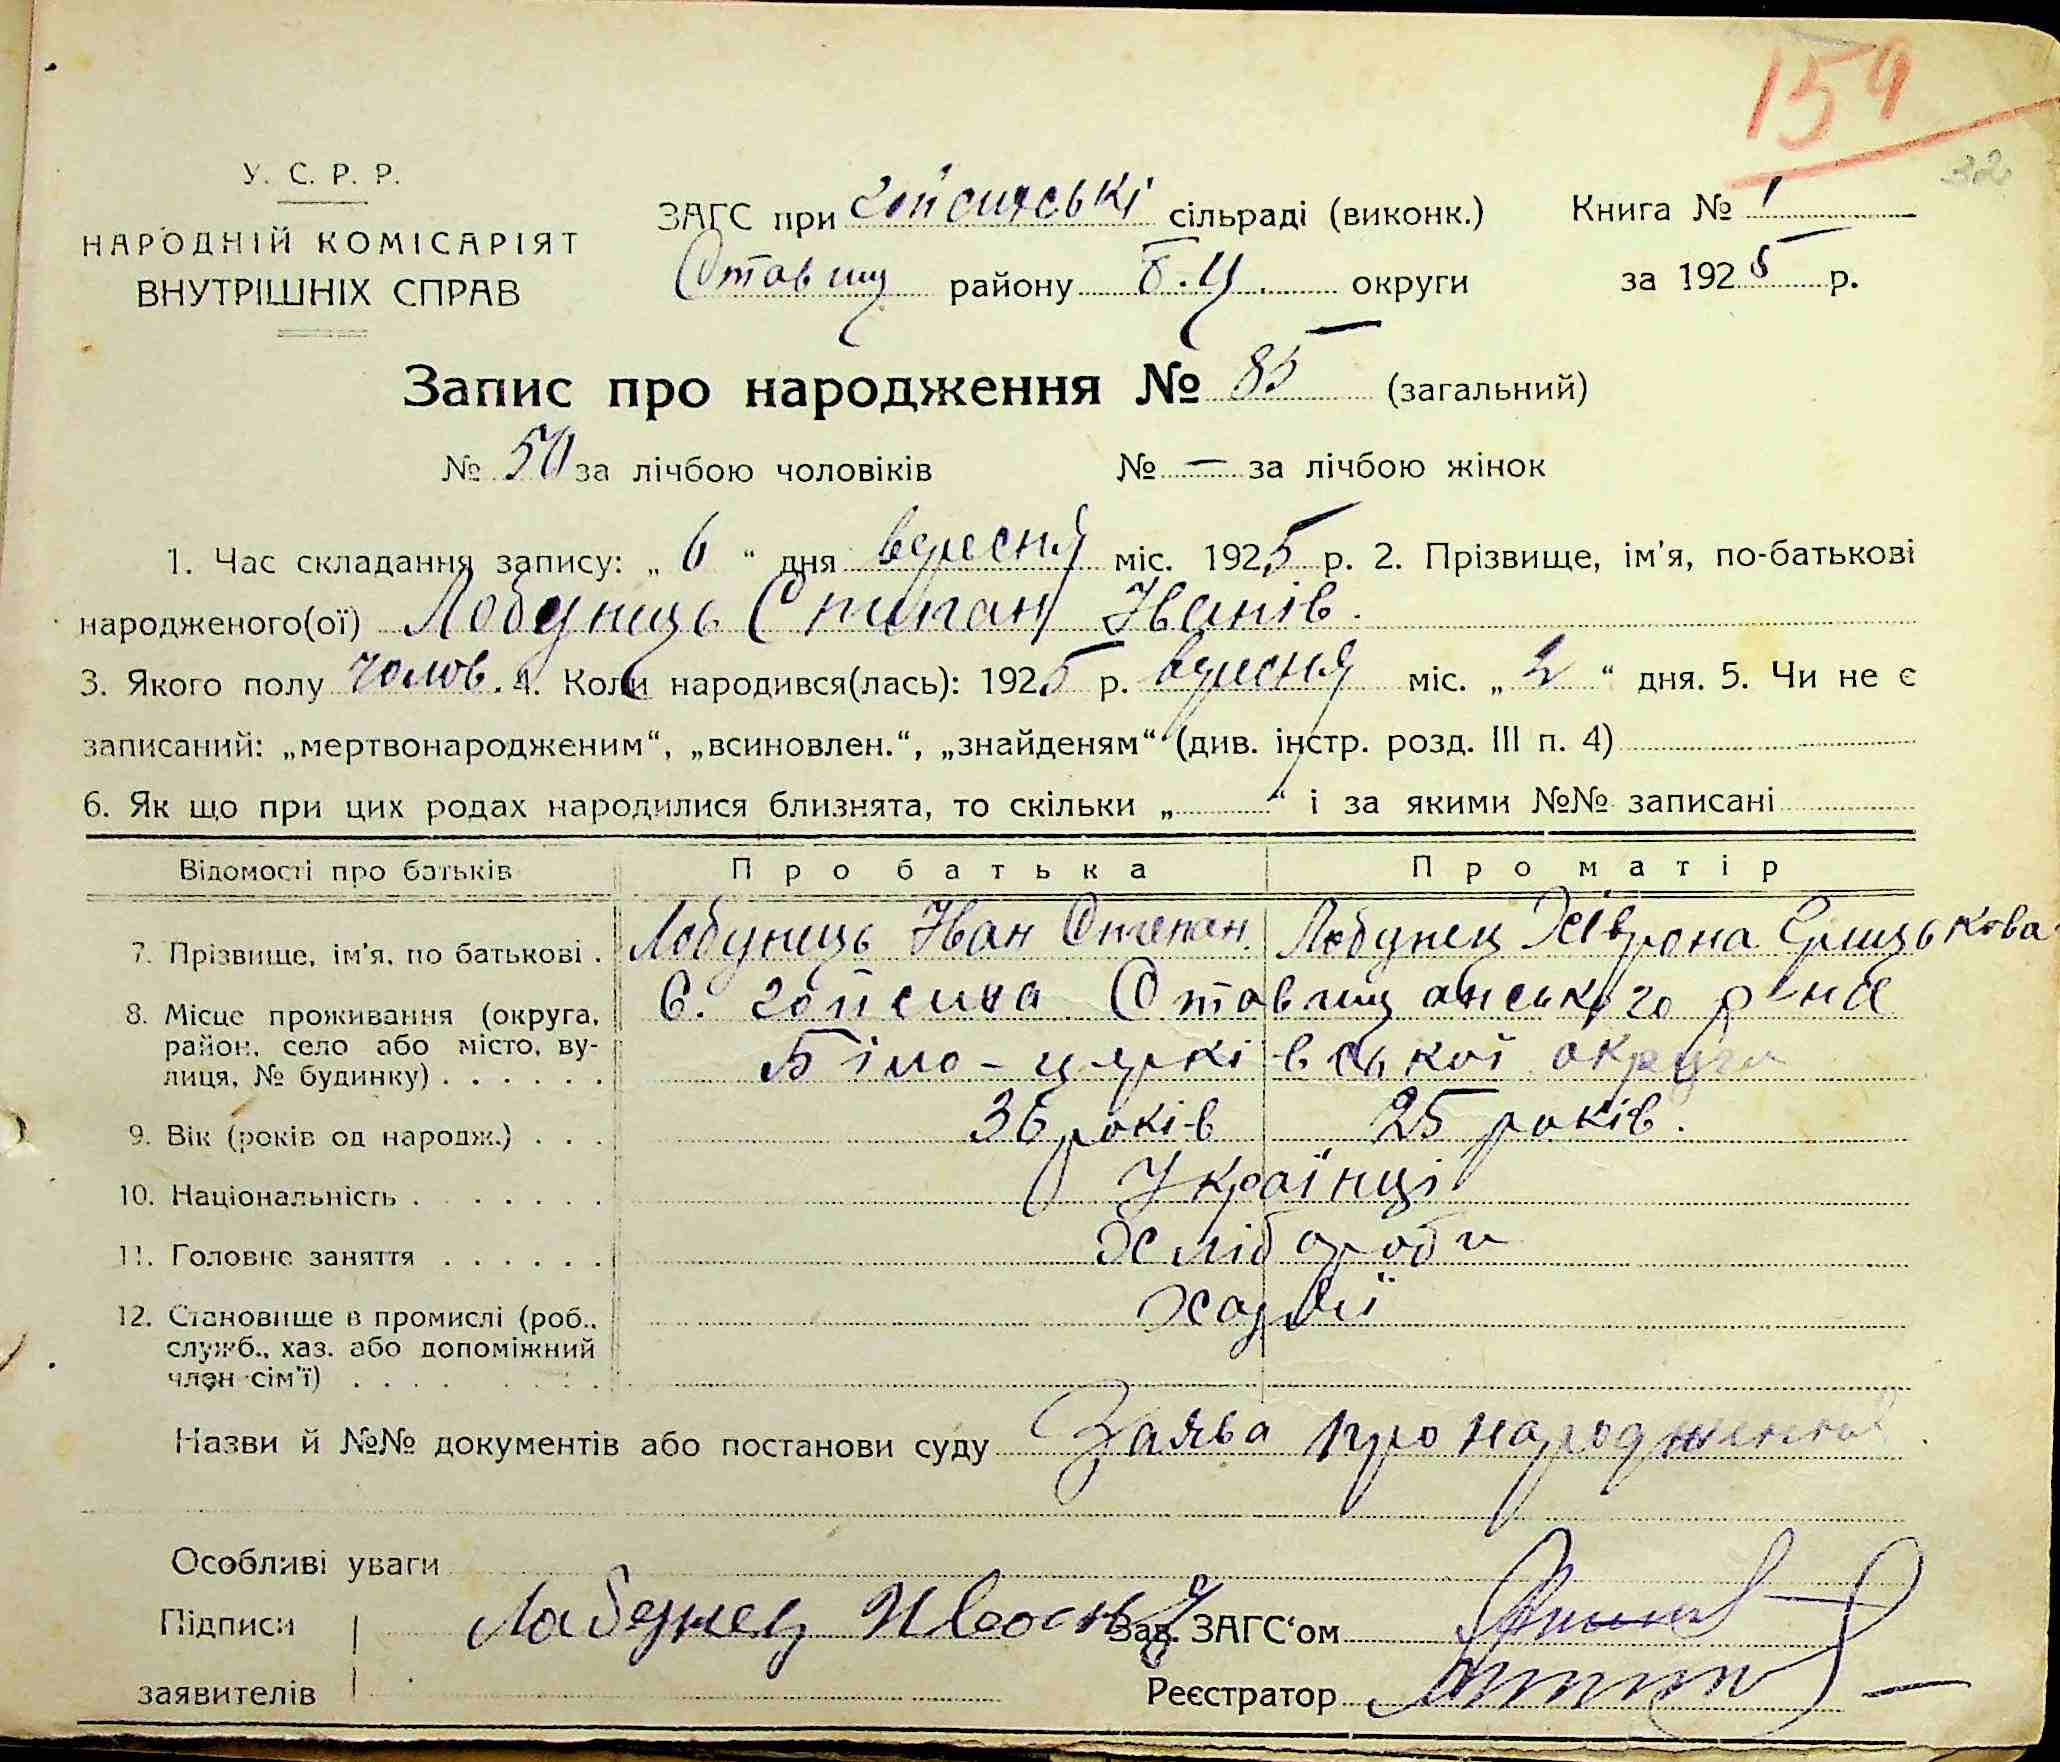 159
32
У. С. Р. Р.
НАРОДНІЙ КОМІСАРІЯТ
ВНУТРІШНІХ СПРАВ
ЗАГС при гойсинські сільраді (виконк.) Книга № 1
Ставищ району Б.Ц. округи за 1925 р.
Запис про народження № 85 (загальний)
№ 50 за лічбою чоловіків № — за лічбою жінок
1. Час складання запису: „ 6 “ дня вересня міс. 1925 р. 2. Прізвище, ім'я, по-батькові
народженого(ої) Лобунець Степан Іванів.
3. Якого полу чолов. 4. Коли народився(лась): 1925 р. вересня міс. „ 2 “ дня. 5. Чи не є
записаний: „мертвонародженим“, „всиновлен.“, „знайденям“ (див. інстр. розд. III п. 4)
6. Як що при цих родах народилися близнята, то скільки „ “ і за якими №№ записані
Відомості про батьків Про батька Про матір
7. Прізвище, ім'я, по батькові . Лобунець Іван Степан. Лобунец Хіврона Грицькова
8. Місце проживання (округа, С. гойсина Ставищанського р-на
район, село або місто, ву-
лиця, № будинку) . . . . . . Біло-церківської округи
9. Вік (років од народж.) . . . 36 років 25 років.
10. Національність . . . . . . . Українці
11. Головне заняття . . . . . . Хлібороби
12. Становище в промислі (роб., Хазяї
служб., хаз. або допоміжний
член сім'ї) . . . . . . . .
Назви й №№ документів або постанови суду Заява про народження
Особливі уваги
Підписи Лабунец Зав. ЗАГС'ом
заявителів Реєстратор